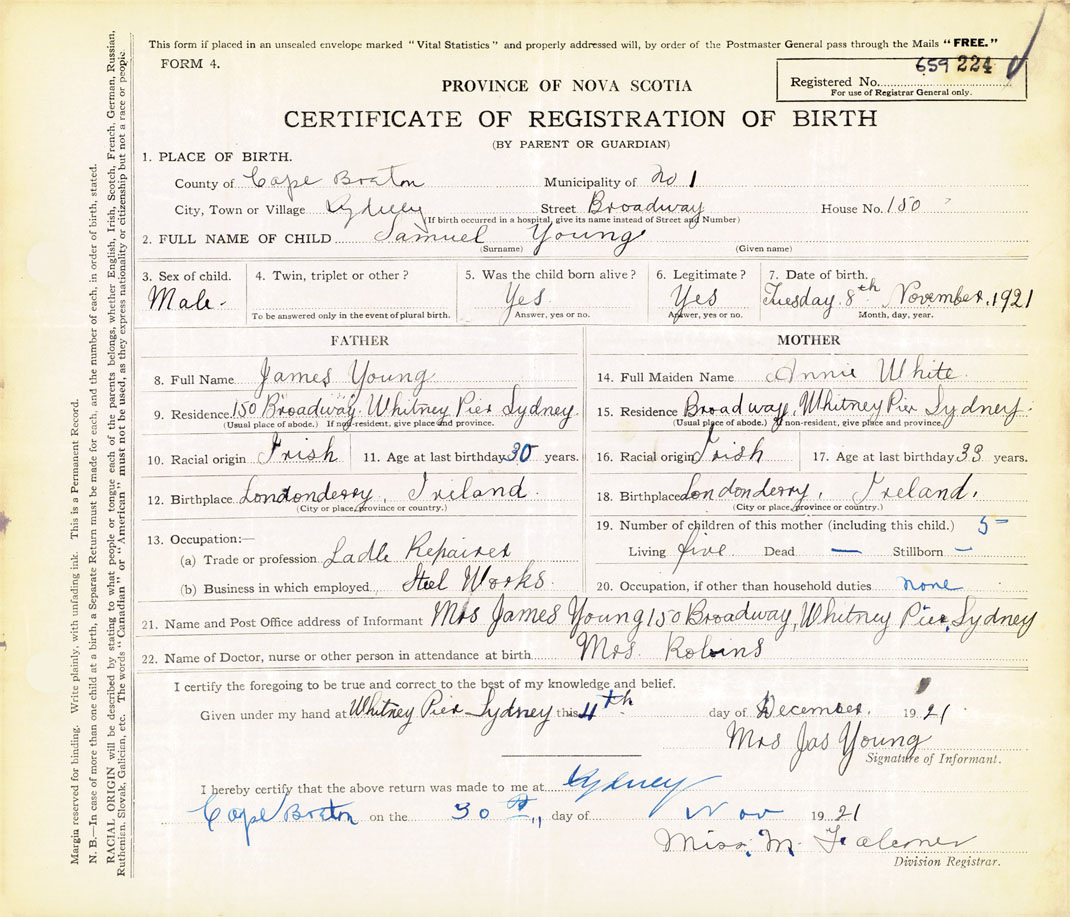 This form if placed in an unsealed envelope marked "Vital Statistics" and properly addressed will, by order of the Postmaster General pass through the Mails "FREE."
FORM 4.
659 224
Registered No.
For use of Registrar General only.
PROVINCE OF NOVA SCOTIA
CERTIFICATE OF REGISTRATION OF BIRTH
(BY PARENT OR GUARDIAN)
1. PLACE OF BIRTH.
County of Cape Braton Municipality of No 1
City, Town or Village Sydney Street Broadway House No. 150
(If birth occurred in a hospital, give its name instead of Street and Number)
2. FULL NAME OF CHILD Samuel Young
(Surname) (Given name)
3. Sex of child. 4. Twin, triplet or other? 5. Was the child born alive? 6. Legitimate? 7. Date of birth.
Male- Yes Yes Tuesday 8th November, 1921
To be answered only in the event of plural birth. Answer, yes or no. Answer, yes or no. Month, day, year.
FATHER
8. Full Name James Young
9. Residence 150 Broadway Whitney Pier Sydney
(Usual place of abode.) If non-resident, give place and province.
10. Racial origin Irish 11. Age at last birthday 30 years.
12. Birthplace Londonderry, Ireland
(City or place, province or country.)
13. Occupation:—
(a) Trade or profession Ladle Repairer
(b) Business in which employed Steel Works
MOTHER
14. Full Maiden Name Annie White
15. Residence Broadway, Whitney Pier Sydney
(Usual place of abode.) If non-resident, give place and province.
16. Racial origin Irish 17. Age at last birthday 33 years.
18. Birthplace Londonderry, Ireland.
(City or place, province or country.)
19. Number of children of this mother (including this child.) 5-
Living five Dead — Stillborn –
20. Occupation, if other than household duties none
21. Name and Post Office address of Informant Mrs James Young 150 Broadway, Whitney Pier, Sydney
22. Name of Doctor, nurse or other person in attendance at birth Mrs. Robins
I certify the foregoing to be true and correct to the best of my knowledge and belief.
Given under my hand at Whitney Pier Sydney this 4th day of December. 1921
Mrs Jas Young
Signature of Informant.
I hereby certify that the above return was made to me at Sydney
Cape Braton on the 30 day of Nov 1921
Miss. M. Falconer
Division Registrar.
Margin reserved for binding. Write plainly, with unfading ink. This is a Permanent Record.
N. B.—In case of more than one child at a birth, a Separate Return must be made for each, and the number of each, in order of birth, stated.
RACIAL ORIGIN will be described by stating to what people or tongue each of the parents belongs, whether English, Irish, Scotch, French, German, Russian,
Ruthenian, Slovak, Galician, etc. The words "Canadian" or "American" must not be used, as they express nationality or citizenship but not a race or people.